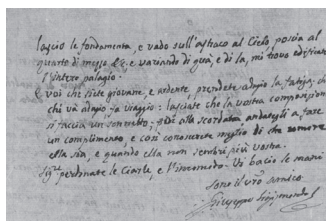 lascio le fondamenta, e vado sull'astraco al Cielo, poscia al
quarto di mezzo &c. e variando di quà, e di la, mi trovo edificato
l'intero palagio.
E voi che siete giovane, e ardente, prendete adagio la fatiga, che
chi và adagio fa viaggio: lasciate che la vostra composizione
si faccia un sonnetto; indi alla scordata andategli a fare
un complimento, e così conoscerete meglio di che
ella sia, e quando ella non sembri più vostra.
Sig.e perdonate le Ciarle, e l'incomodo. Vi bacio le mani
Sono il vro amico
Giuseppe Sigismondo